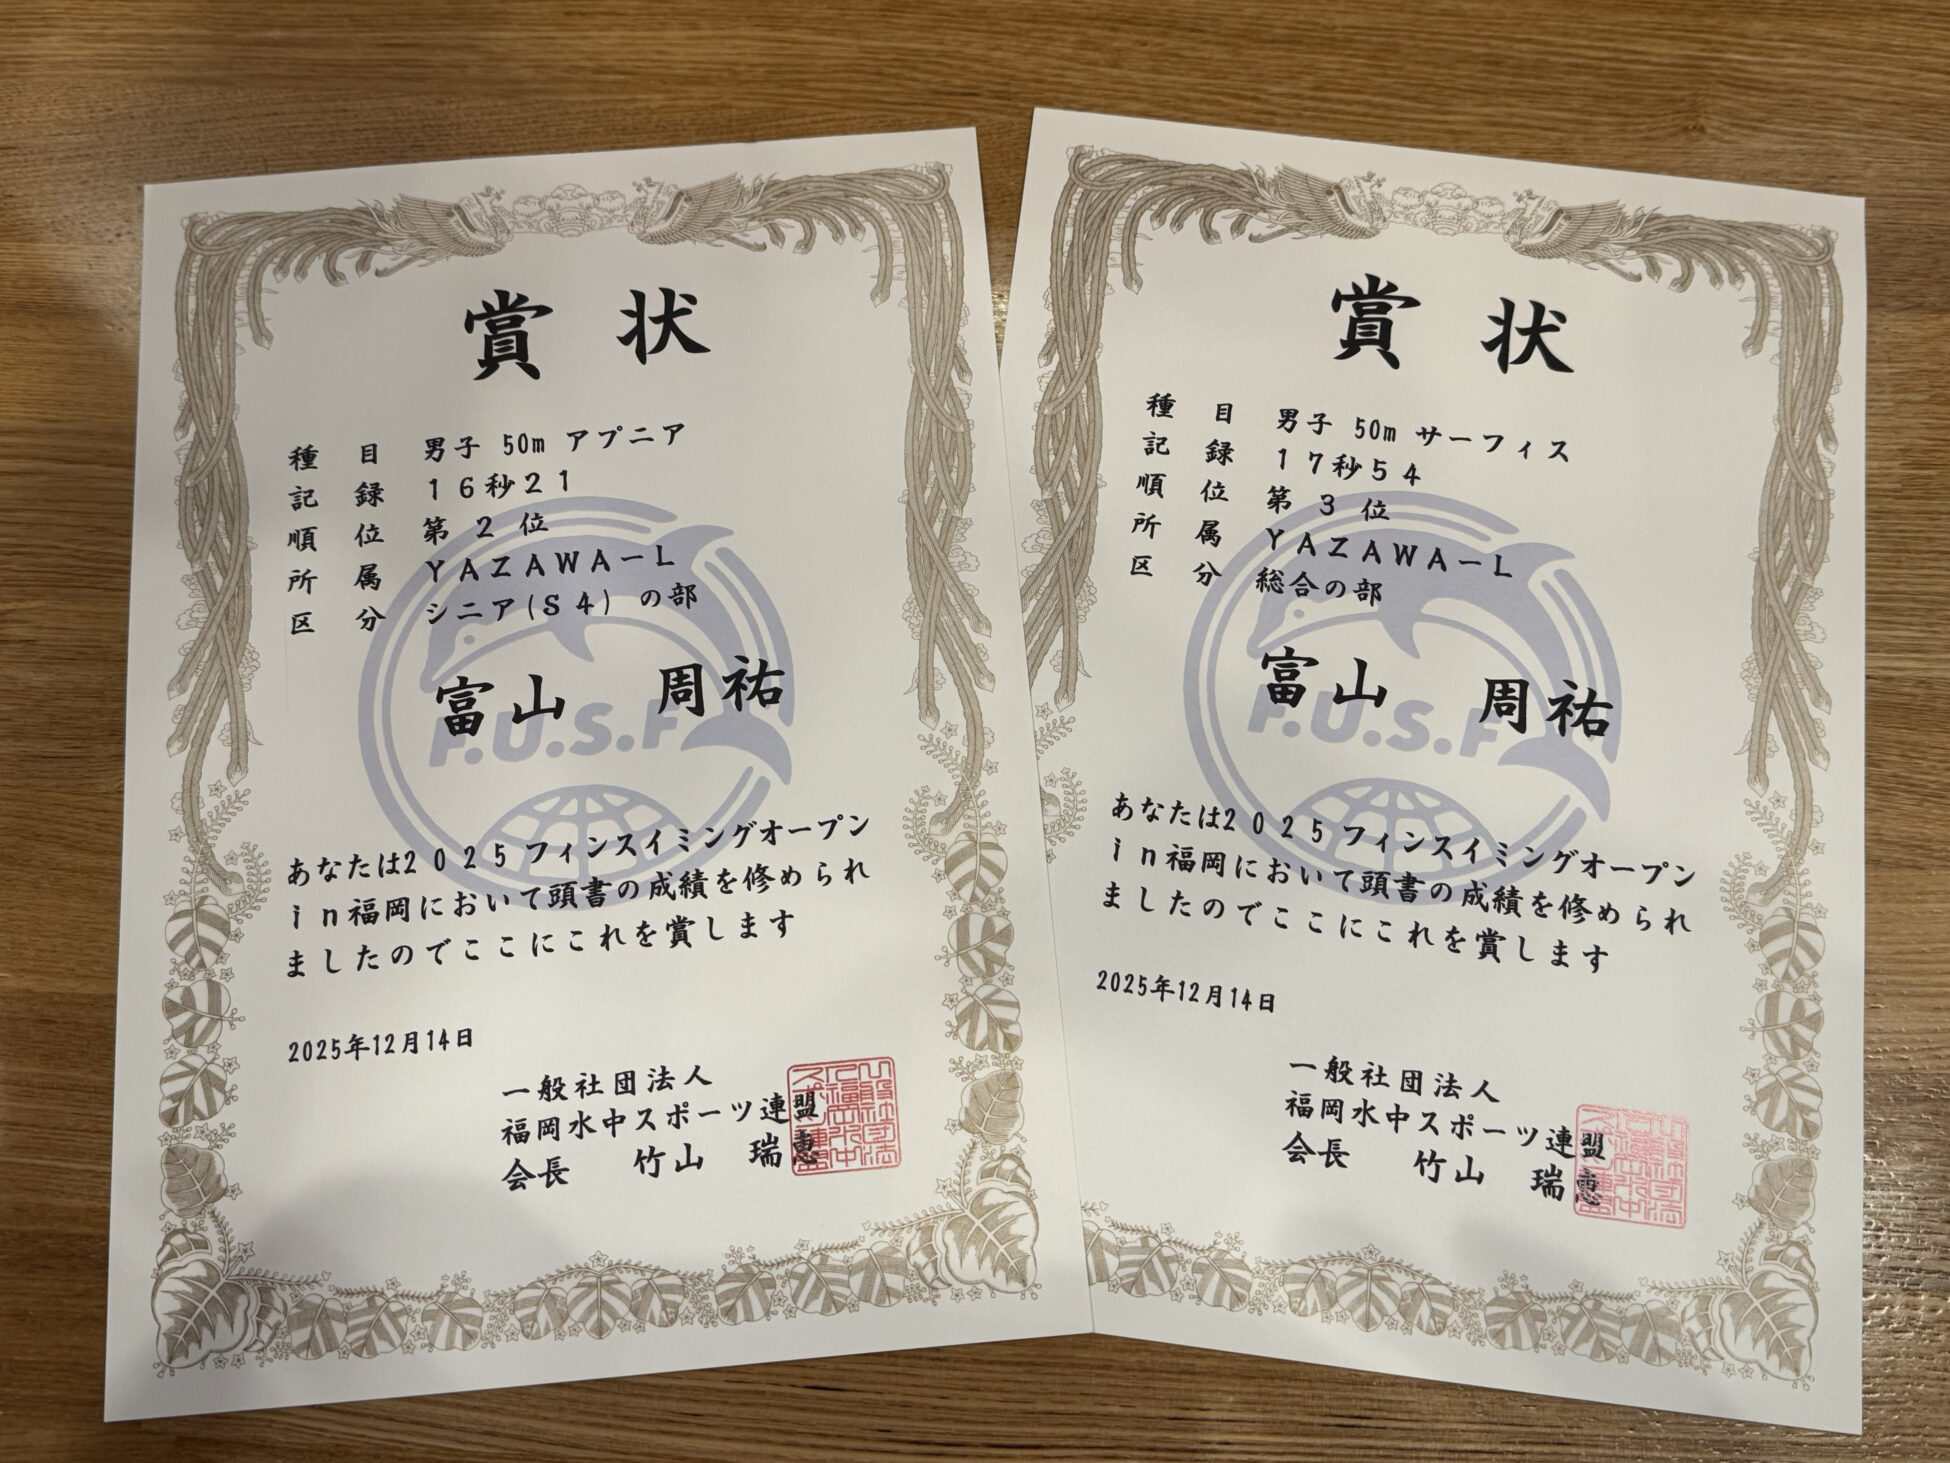 賞状
種目 男子 50m アプニア
記録 16秒21
順位 第2位
所属 YAZAWA－L
区分 シニア(S4) の部
富山 周祐
F.U.S.F
あなたは2025フィンスイミングオープン
in福岡において頭書の成績を修められ
ましたのでここにこれを賞します
2025年12月14日
一般社団法人
福岡水中スポーツ連盟
会長 竹山 瑞恵
賞状
種目 男子 50m サーフィス
記録 17秒54
順位 第3位
所属 YAZAWA－L
区分 総合の部
富山 周祐
F.U.S.F
あなたは2025フィンスイミングオープン
in福岡において頭書の成績を修められ
ましたのでここにこれを賞します
2025年12月14日
一般社団法人
福岡水中スポーツ連盟
会長 竹山 瑞恵